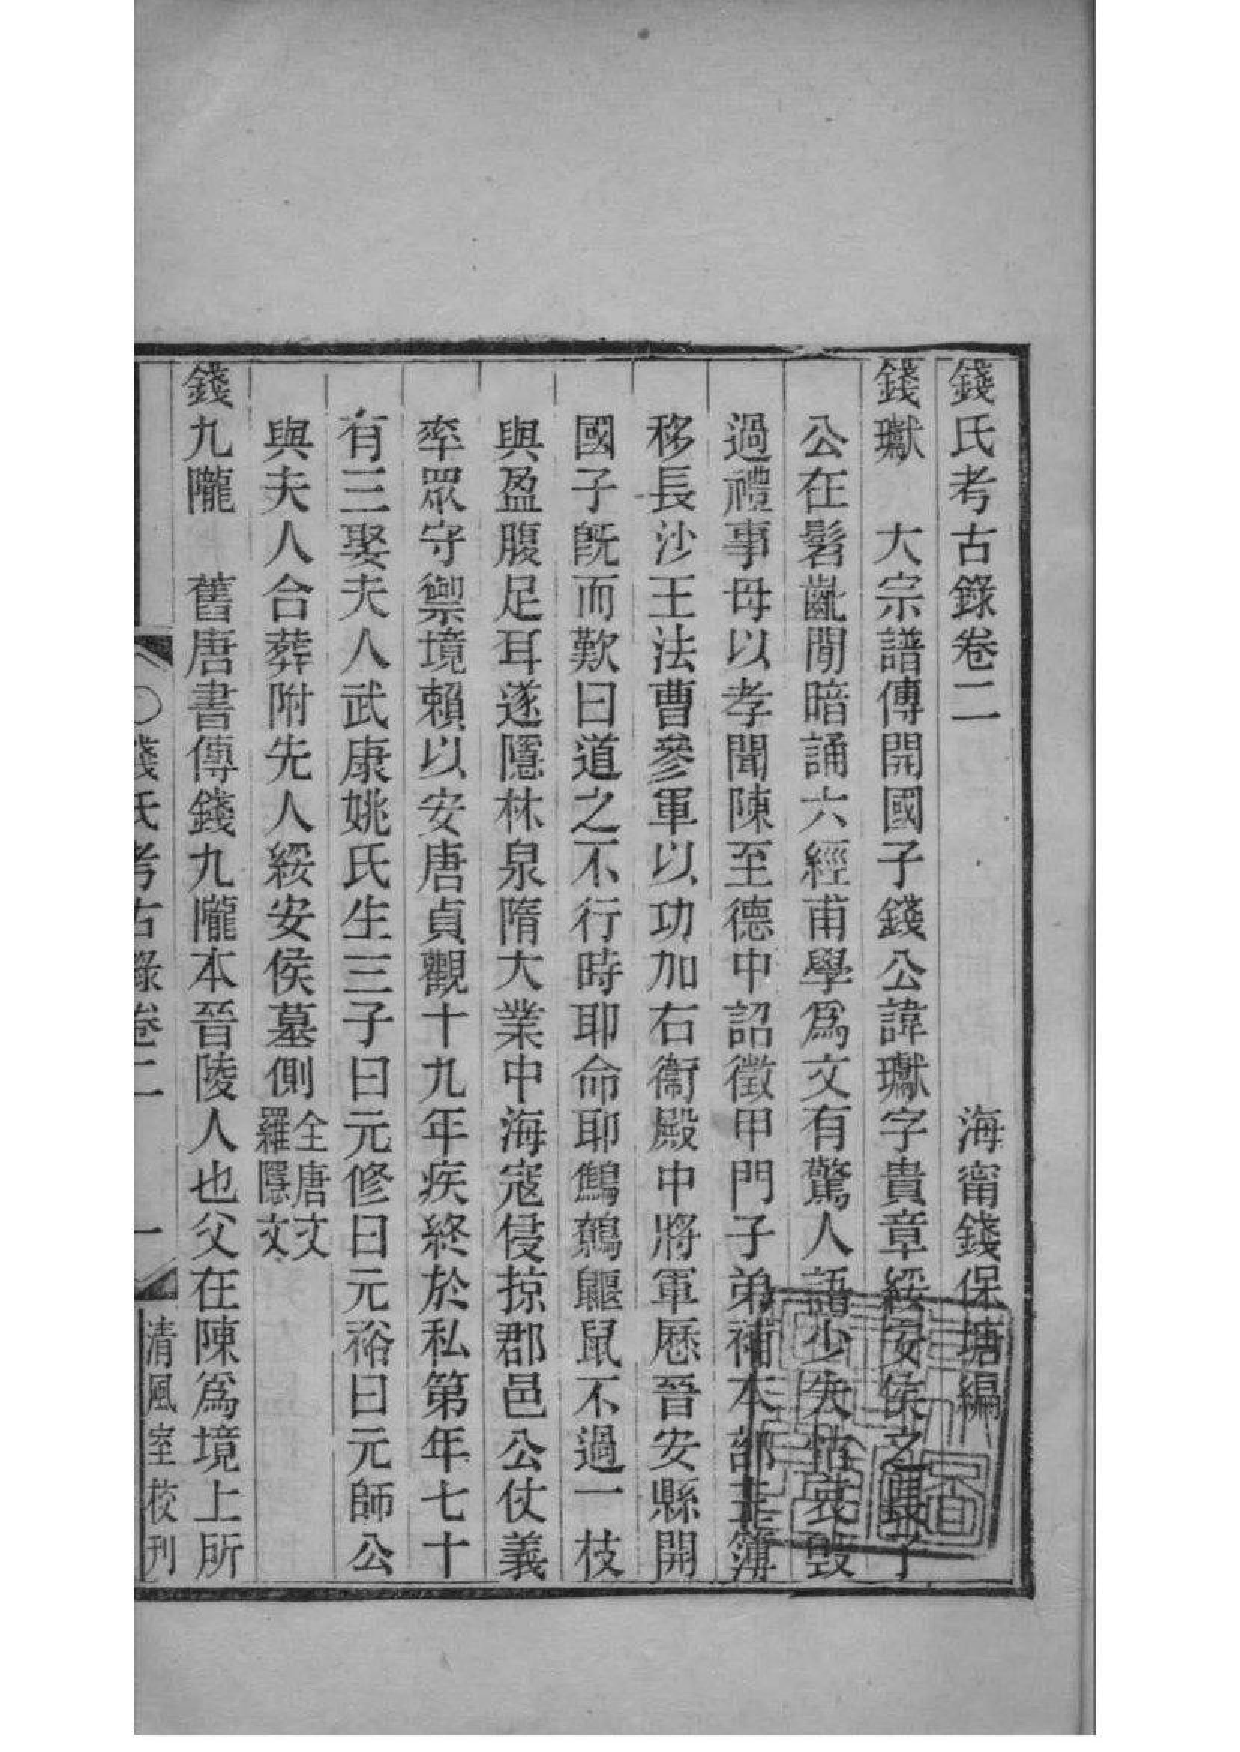 錢氏考古錄卷二　海甯錢保塘編
錢巘　大宗譜傳開國子錢公諱巘字貴章綏安侯之長子
公在髫齔閒暗誦六經甫學爲文有驚人語少失怙哀毁
過禮事母以孝聞陳至德中詔徵甲門子弟補本部主簿
移長沙王法曹參軍以功加右衞殿中將軍厯晉安縣開
國子旣而歎曰道之不行時耶命耶鷦鷯鼴鼠不過一枝
與盈腹足耳遂隱林泉隋大業中海寇侵掠郡邑公仗義
率眾守禦境賴以安唐貞觀十九年疾終於私第年七十
有三娶夫人武康姚氏生三子曰元修曰元裕曰元師公
與夫人合葬附先人綏安侯墓側全唐文羅隱文
錢九隴　舊唐書傳錢九隴本晉陵人也父在陳爲境上所
錢氏考古錄卷二　一　清風室校刊